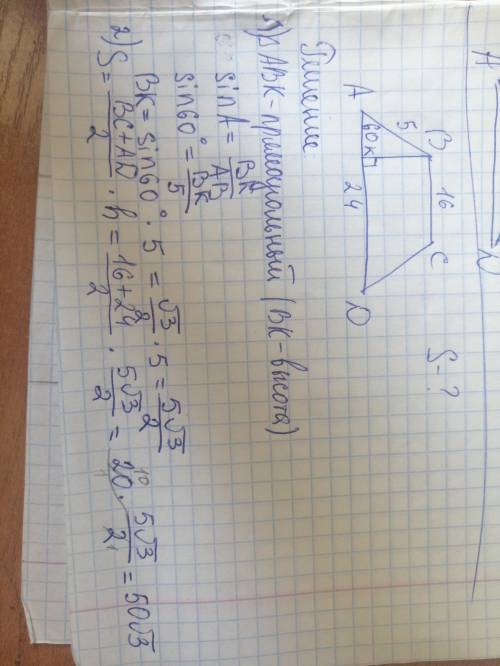 B 16 C
5
A 60° K
24 D
S - ?
Решение:
1) △ABK - прямоугольный (BK - высота)
sin A = BK/AB
sin 60° = BK/5
BK = sin 60° · 5 = √3/2 · 5 = 5√3/2
2) S = (BC + AD)/2 · h = (16 + 24)/2 · 5√3/2 = 20 · 5√3/2 = 50√3